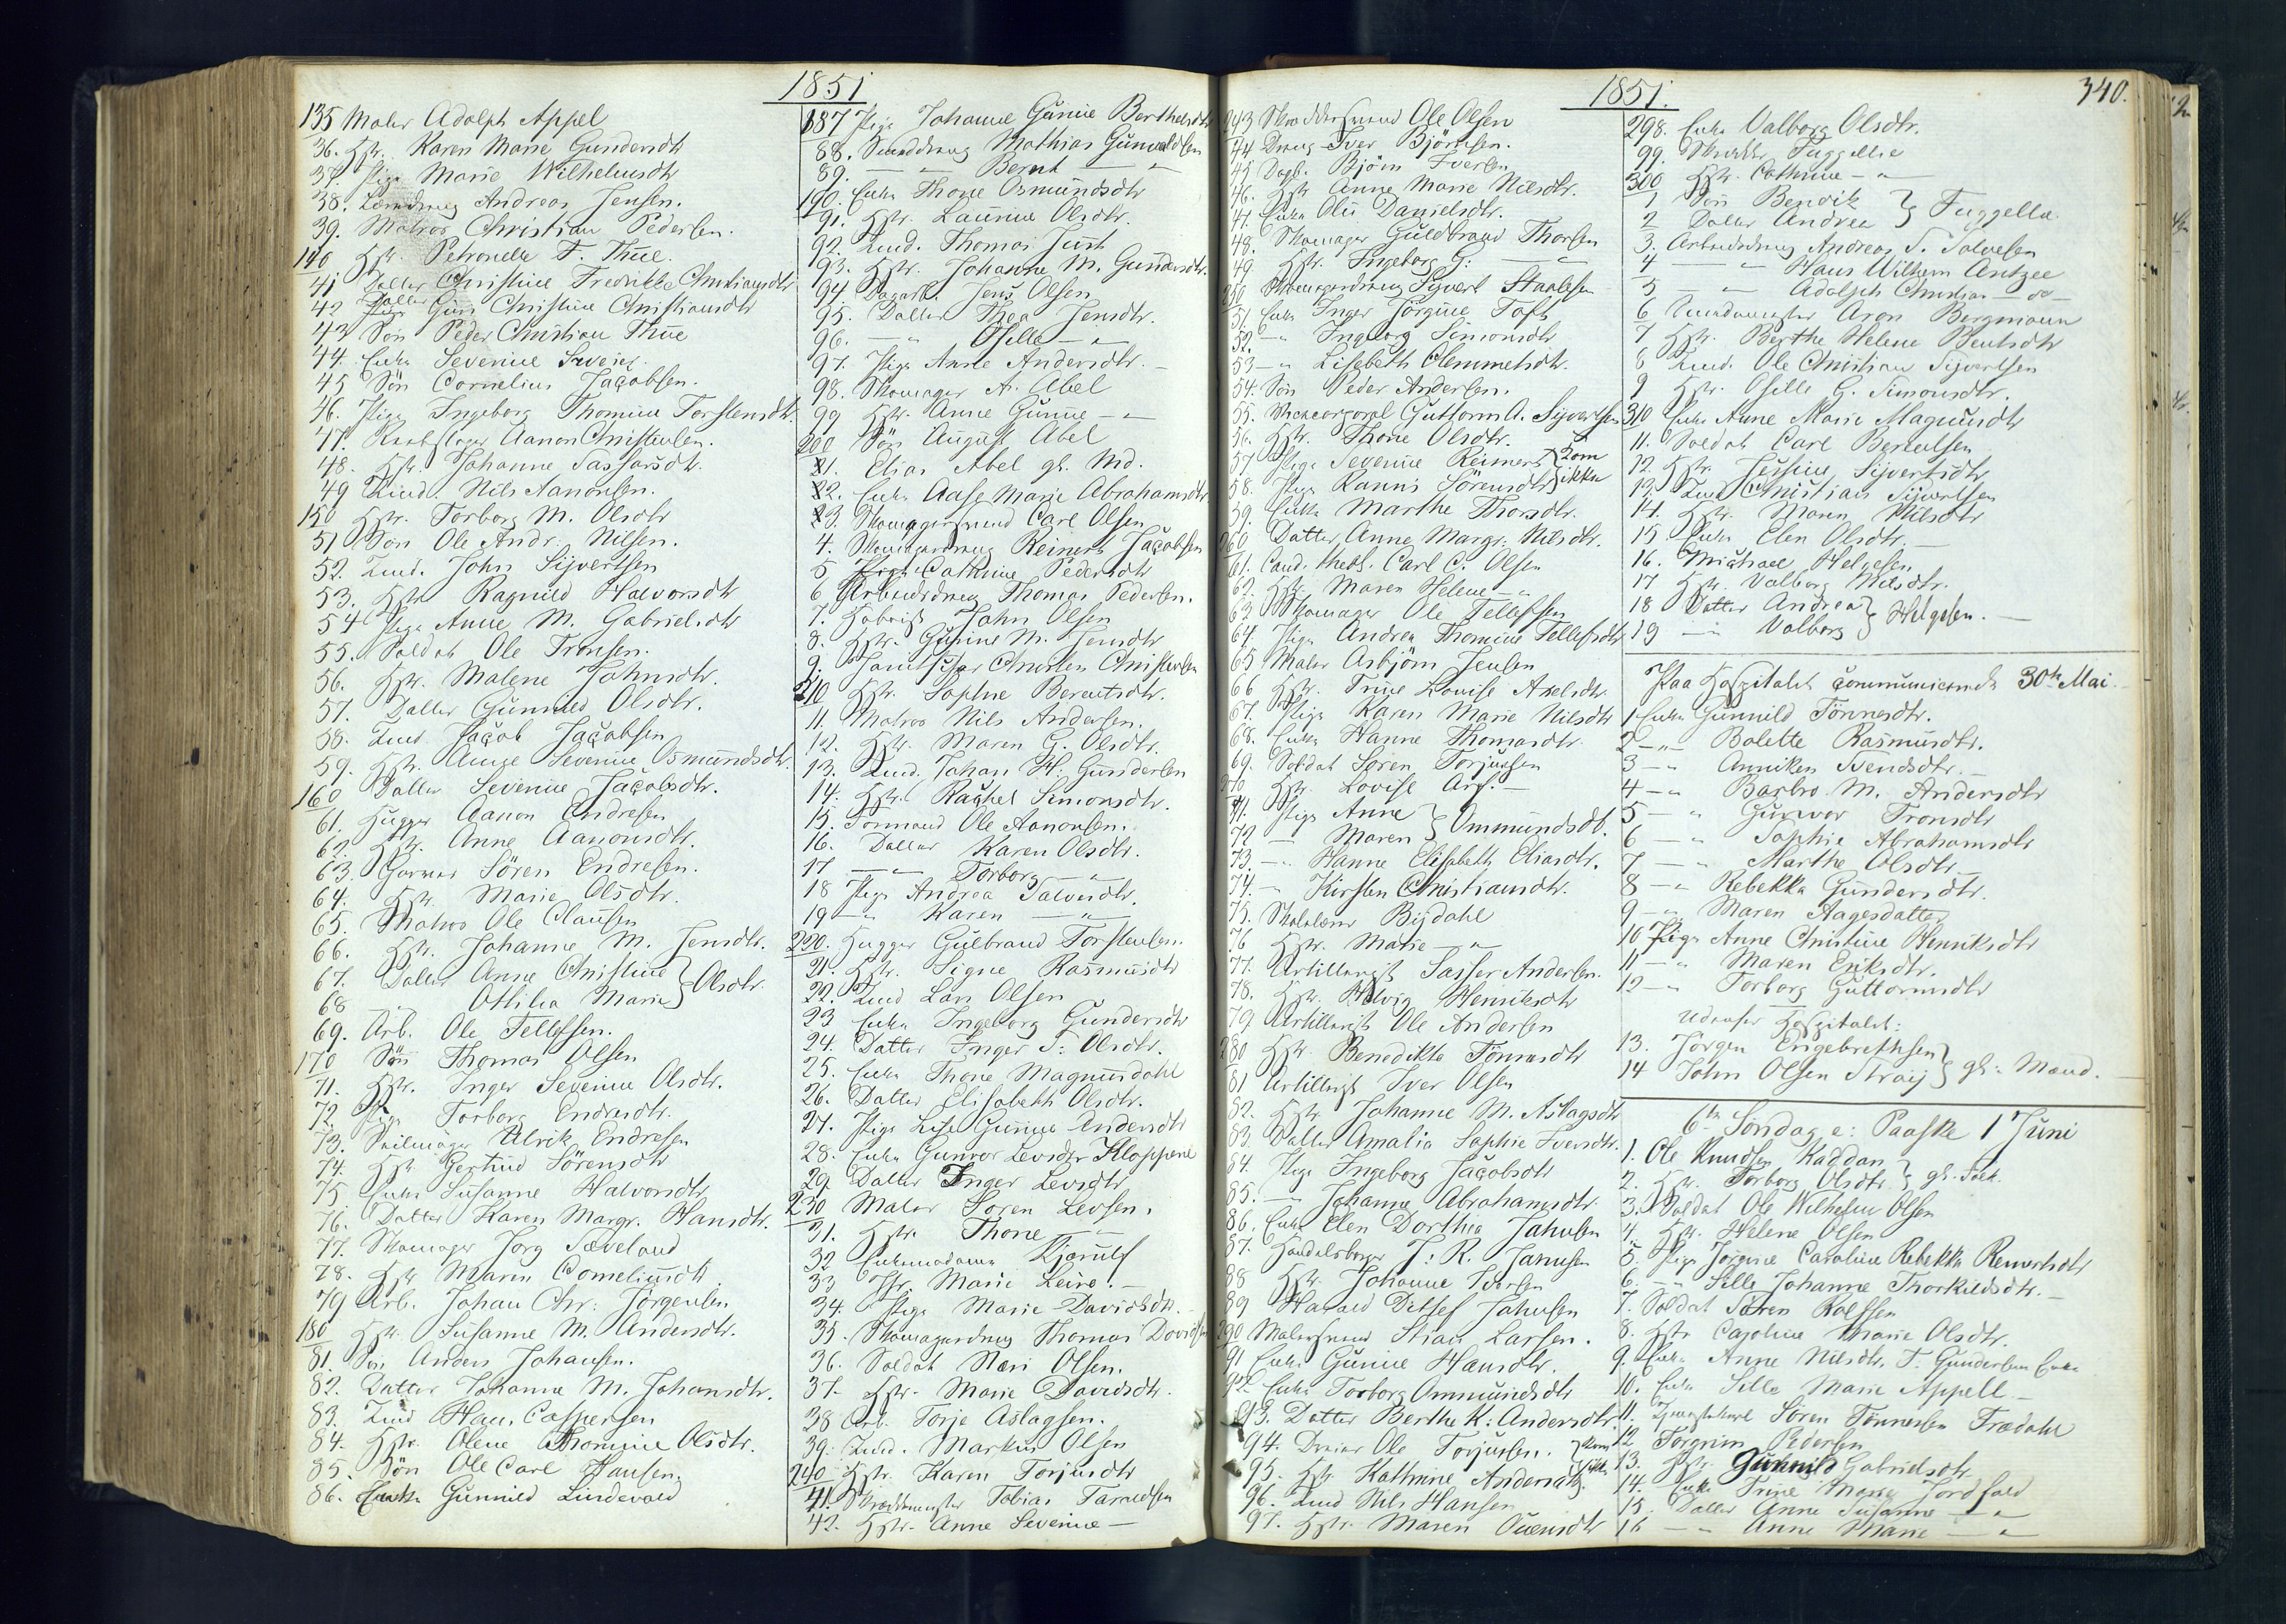 1851
135 Maler Adolph Appel
36. Hstr. Karen Marie Gundersdtr
37. Pige Marie Wilhelmsdtr
38. Andreas Jensen.
39. Matros Christian Pedersen.
140 Hstr. Petronelle F. Thue.
41 Datter Christine Fredrikke Christiansdtr
42 Datter Christine Christiansdtr
43 Søn Peder Christian Thue
44. Enke Severine
45 Søn Cornelius Jacobsen.
46. Pige Ingeborg Thomine Torstensdtr.
47. Aanon Christensen.
48. Hstr. Johanne Tassarsdtr.
49 Lind. Nils Aanonsen.
150 Hstr. Torborg M. Olsdtr
51 Søn Ole Andr: Nilsen.
52. Lind. John Sijvertsen
53. Hstr. Ragnild Halvorsdtr
54 Pige Anne M. Gabrielsdtr
55. Soldat Ole Tronsen.
56. Hstr. Malene Johnsdtr.
57. Datter Gunnild Olsdtr.
58. Lind. Jacob Jacobsen
59. Hstr. Severine Osmundsdtr.
160 Datter Severine Jacobsdtr.
61. Hugger Aanon Endresen
62. Hstr. Anne Aanonsdtr.
63. Garver Sören Endresen.
64. Hstr. Marie Olsdtr.
65. Matros Ole Clausen
66. Hstr. Johanne M. Jensdtr.
67. Datter Anne Christine } Olsdtr.
68 — Ottilia Marie
69. Arb. Ole Tellefsen.
170 Søn Thomas Olsen
71. Hstr. Inger Severine Olsdtr.
72. Pige Torborg Endresdtr.
73. Seilmager Ulrik Endresen
74. Hstr. Gertrud Sörensdtr
75 Enke Susanne Halvorsdtr
76. Datter Karen Margr. Hansdtr.
77. Skomager Jorg Sæveland
78. Hstr. Maren Corneliusdtr.
79 Arb. Johan Chr: Jörgensen
180 Hstr. Susanne M. Andersdtr.
81. Søn Anders Johansen.
82. Datter Johanne M. Johansdtr.
83. Lind Hans Caspersen
84. Hstr. Olene Thomine Olsdtr.
85. Søn Ole Carl Hansen.
86. Enke Gunnild Lindevold
187 Pige Johanne Gurine Berthelsdtr
88. Mathias Gunvaldsen
89. — " — Bernt — "
190. Enke Thone Osmundsdtr
91. Hstr. Laurine Olsdtr.
92. Lind. Thomas Just
93. Hstr. Johanne M. Gundersdtr.
94 Dagarb. Jens Olsen
95. Datter Thea Jensdtr.
96. — " Osille — "
97. Pige Anne Andersdtr. —
98. Skomager A. Abel
99 Hstr. Anne Gurine — "
200 Søn August Abel
1. Elias Abel gl. Md.
2. Enke Aase Marie Abrahamsdtr
3. Skomagersvend Carl Olsen
4. Skomagerdreng Reinert Jacobsen
5 Pige Cathrine Pedersdtr
6 Arbeidsdreng Thomas Pedersen.
7. John Olsen
8. Hstr. Gurine M. Jensdtr
9. Christen Christensen
210 Hstr. Sophie Berentsdtr.
11. Matros Nils Andersen.
12. Hstr. Maren G. Olsdtr.
13. Lind. Johan H: Gundersen
14. Hstr. Rachel Simonsdtr.
15. Tømmmand Ole Aanonsen.
16. Datter Karen Olsdtr.
17 — " — Torborg — "
18 Pige Andrea Salvesdtr.
19 — " Karen — "
220. Hugger Gulbrand Torstensen.
21. Hstr. Signe Rasmusdtr
22. Lind Lars Olsen
23 Enke Ingeborg Gundersdtr
24. Datter Inger S: Olsdtr.
25. Enke Thone Magnusdahl
26. Datter Elisabeth Olsdtr.
27. Pige Lise Gurine Andersdtr
28. Enke Gunvor Levsdtr Kloppene
29 Datter Inger Levsdtr
230 Maler Soren Levsen.
31. Hstr. Thone — " —
32 Enkemadame Kjørulf
33 Jfr. Marie Leire. —
34. Pige Marie Davidsdtr. —
35. Skomagerdreng Thomas Davidsen
36. Soldat Næri Olsen.
37. Hstr. Marie Davidsdtr.
38 Arb. Torje Aslagsen.
39. Lind. Markus Olsen
240 Hstr. Karen Torjusdtr
41. Skræddermester Tobias Taraldsen
42. Hstr. Anne Severine —
1851.
340.
243 Skræddersvend Ole Olsen
44 Dreng Iver Björnsen.
45 Dagb. Björn Iversen
46. Hstr Anne Marie Nilsdtr.
47 Enke Olu Danielsdtr.
48. Skomager Guldbrand Thorsen
49 Hstr. Ingeborg G: — "
250 Skomagerdreng Sijvert Staalesen
51 Enke Inger Jörgine Toft
52. — " Ingeborg Simonsdtr
53 — " Lisebeth Clemmetsdtr.
54. Søn Peder Andersen.
55. Vicecorporal Guttorm A. Sijvertsen
56. Hstr. Thone Olsdtr.
57. Pige Severine Reinert } kom
58. Pige Rannis Sörensdtr } ikke
59. Enke Marthe Thorsdtr.
260 Datter Anne Margr. Nilsdtr.
61. Cand. theol. Carl C. Olsen
62. Hstr. Maren Helene — "
63. Skomager Ole Tellefsen
64. Pige Andrea Thomine Tellefsdtr
65 Maler Asbjörn Jensen
66 Hstr. Trine Lovise Axelsdtr.
67. Pige Karen Marie Nilsdtr
68. Enke Hanne Thomasdtr.
69. Soldat Sören Torjusen
270 Hstr. Lovise Arf. —
71. Pige Anne } Ommundsdt.
72 — Maren
73. — " Hanne Elisabeth Eliasdtr.
74. — " Kirsten Christiansdtr.
75. Skolelærer Bigdahl
76 Hstr. Marie — "
77. Artillerist Tasser Andersen.
78. Hstr. Helvig Henriksdtr
79 Artillerist Ole Andersen
280 Hstr. Benedikte Tönnesdtr
81 Artillerist Iver Olsen
82. Hstr. Johanne M. Aslagsdtr
83 Datter Amalia Sophie Iversdtr.
84. Pige Ingeborg Jacobsdtr
85. — " Johanne Abrahamsdtr.
86. Enke Elen Dorthea Jahnsen
87. Handelsborger J: R. Jahnsen
88 Hstr. Johanne Iversen
89 Harald Ditlef Jahnsen
290 Malersvend Stian Larsen.
91 Enke Gurine Hansdtr.
92. Enke Torborg Ommundsdtr
93. Datter Berthe K: Andersdtr
94. Dreier Ole Torjusen. } kom
95. Hstr Kathrine Andersdtr. } ikke
96. Lind Nils Hansen
97. Hstr. Maren Ouensdtr
298. Enke Valborg Olsdtr.
99. Skrædder Fuggellie
300 Hstr. Cathrine — "
1 Søn Bendik } Fuggella.
2 Datter Andrea
3. Arbeidsdreng Andreas T. Salvesen
4 — " Hans Wilhem Antzee
5 — " Adolph Christian — do —
6 Aron Bergmann
7 Hstr. Berthe Helene Bentsdtr
8 Lind. Ole Christian Sijvertsen
9 Hstr. Osille G. Simonsdtr.
310 Enke Anne Marie Magnusdtr
11. Soldat Carl Berentsen
12. Hstr. Jessine Sijvertsdtr
13. Lind Christian Sijvertsen
14. Hstr. Maren Nilsdtr
15. Enke Elen Olsdtr. —
16. Michael Helgesen
17 Hstr. Valborg Nilsdtr.
18 Datter Andrea } Helgesen. —
19 — " Valborg
Paa Hospitalet communicerede 30te Mai.
1 Enke Gunnild Tönnesdtr.
2 — " — Bolette Rasmusdtr.
3 — " Anniken Svendsdtr. —
4 — " Barbro M. Andersdtr
5 — " Gunvor Tronsdtr
6 — " Sophie Abrahamsdtr
7 — " Marthe Olsdtr —
8 — " Rebekka Gundersdtr.
9 — " Maren Aagesdatter
10 Pige Anne Christine Henriksdtr
11 — " Maren Eriksdtr.
12 — " Torborg Guttormsdtr
Udenfor Hospitalet:
13. Jörgen Engebrethsen } gl: Mænd.
14 John Olsen Straij
6te Søndag e: Paaske 1 Juni
1. Ole Knudsen Kaddan } gl. Folk.
2. Hstr. Torborg Olsdtr.
3. Soldat Ole Wilhelm Olsen
4. Hstr. Helene Olsen
5. Pige Jörgine Caroline Rebekka Reinertsdtr
6. — " Sille Johanne Thorkildsdtr. —
7. Soldat Sören Rolfsen
8. Hstr Caroline Marie Olsdtr.
9. Enke Anne Nilsdtr. T. Gundersens Enke
10. Enke Sille Marie Appell —
11. Sören Tönnesen Frædahl
12 Torgrim Pedersen
13. Hstr. Gunnild Gabrielsdtr.
14. Enke Trine Marie Jordfald
15. Datter Anne Susanne — "
16 — " Anne Marie — "